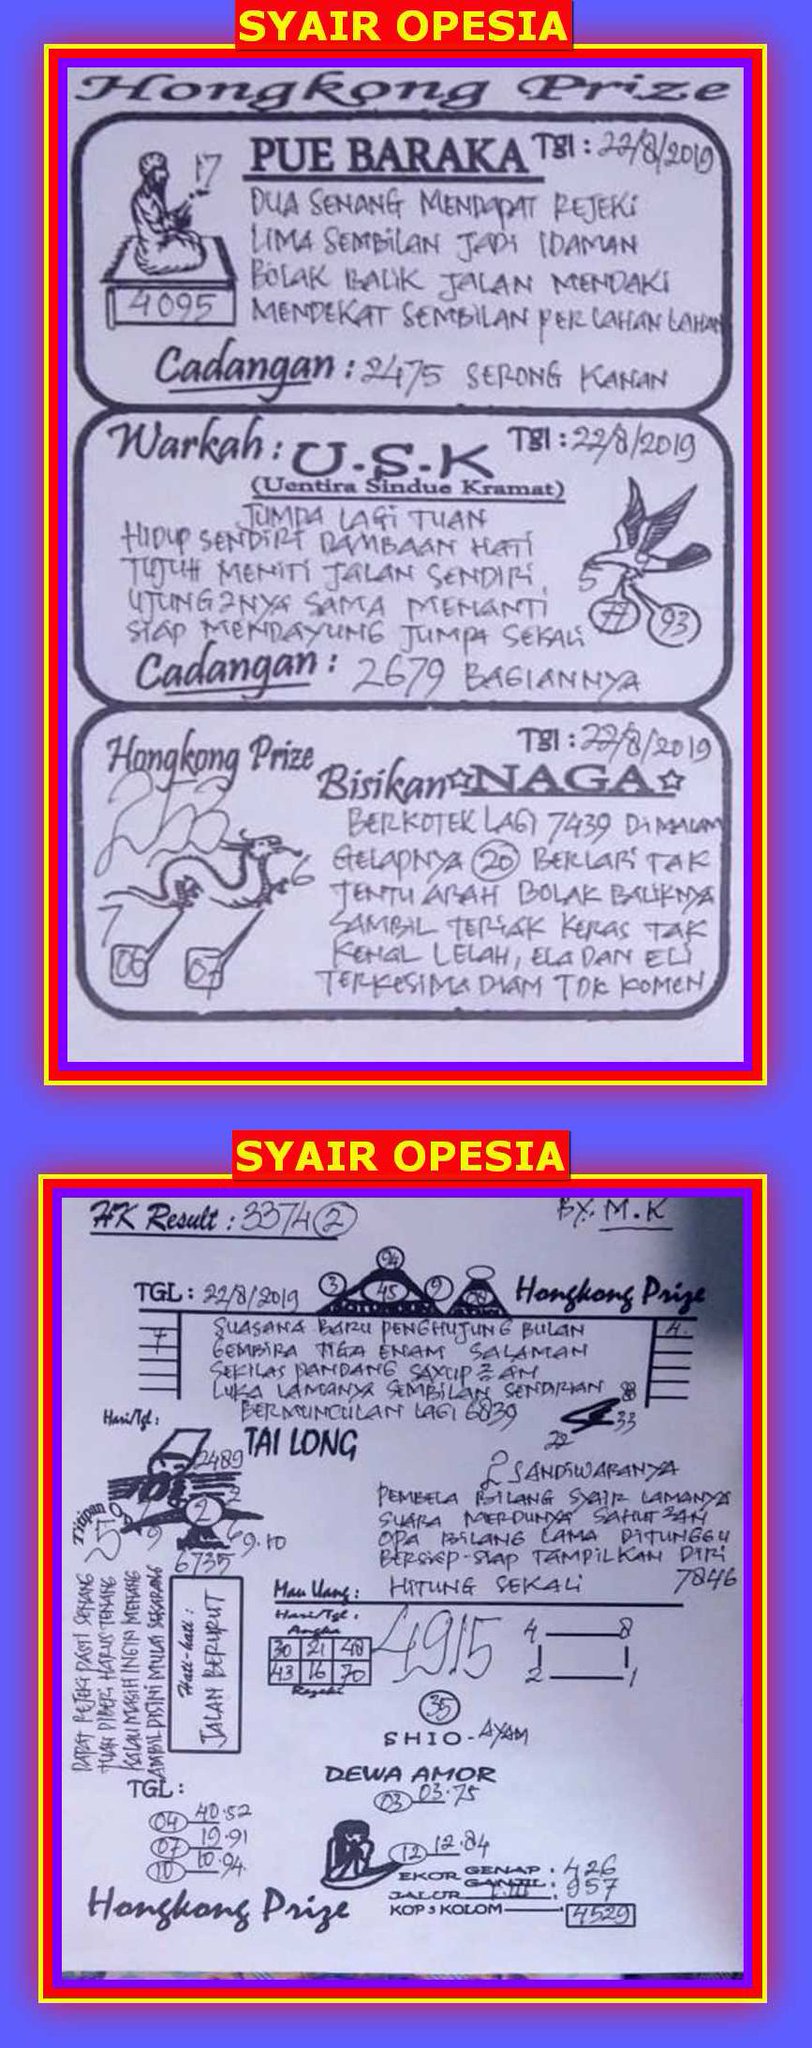 SYAIR OPESIA
Hongkong Prize
PUE BARAKA Tgl : 22/8/2019
17
DUA SENANG MENDAPAT REJEKI
LIMA SEMBILAN JADI IDAMAN
BOLAK BALIK JALAN MENDAKI
MENDEKAT SEMBILAN PERLAHAN LAHAN
4095
Cadangan : 2475 SERONG KANAN
Warkah : U.S.K Tgl : 22/8/2019
(Uentira Sindue Kramat)
JUMPA LAGI TUAN
HIDUP SENDIRI DAMBAAN HATI
TUJUH MENITI JALAN SENDIRI
UJUNG2NYA SAMA MENANTI
SIAP MENDAYUNG JUMPA SEKALI
5
77 93
Cadangan : 2679 BAGIANNYA
Hongkong Prize Tgl : 22/8/2019
Bisikan NAGA
253
6
7
06 07
BERKOTEK LAGI 7439 DI MALAM
GELAPNYA 20 BERLARI TAK
TENTU ARAH BOLAK BALIKNYA
SAMBIL TERIAK KERAS TAK
KENAL LELAH, ELA DAN ELI
TERKESIMA DIAM TDK KOMEN
SYAIR OPESIA
HK Result : 3374 2
BY. M.K
TGL : 22/8/2019
3 45 9
Hongkong Prize
7
4.
SUASANA BARU PENGHUJUNG BULAN
GEMBIRA TIGA ENAM SALAMAN
SEKILAS PANDANG
LUKA LAMANYA SEMBILAN SENDIRIAN
BERMUNCULAN LAGI 6839
33
22
Hari/Tgl :
TAI LONG
2489
Titipan
2
9.10
6735
2 SANDIWARANYA
PEMBELA BILANG SYAIR LAMANYA
SUARA MERDUNYA SAHUT2AN
OPA BILANG LAMA DITUNGGU
BERSIAP-SIAP TAMPILKAN DIRI
HITUNG SEKALI 7846
DAPAT REJEKI PASTI SENANG
TUAN DIBERI HARUS TENANG
KALAU MASIH INGIN MENANG
AMBIL DISINI MULAI SEKARANG
Hati-hati :
JALAN BERURUT
Mau Uang :
Hari/Tgl :
Angka
30 21 48
43 16 70
Rejeki
4915
4 8
2 1
35
SHIO - AYAM
TGL :
04 40.52
07 19.91
10 10.94
DEWA AMOR
03 03.75
12 12.84
EKOR GENAP : 426
GANJIL : 957
JALUR
KOP 3 KOLOM : 4529
Hongkong Prize